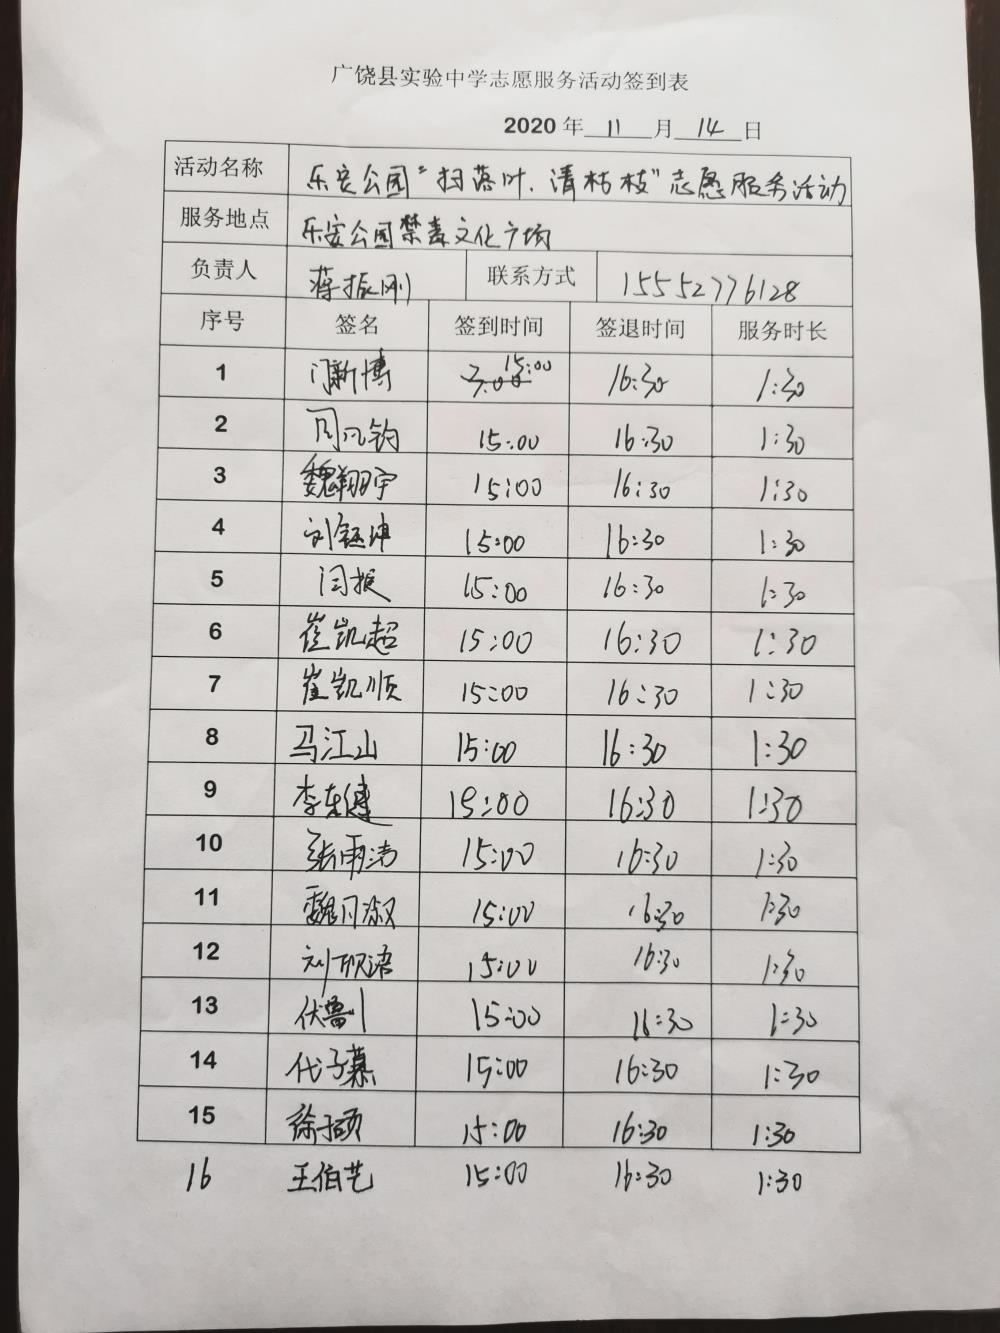 广饶县实验中学志愿服务活动签到表
2020 年 11 月 14 日
活动名称 乐安公园“扫落叶、清枯枝”志愿服务活动
服务地点 乐安公园禁毒文化广场
负责人 蒋振刚 联系方式 15552776128
序号 签名 签到时间 签退时间 服务时长
1 闫新博 3:00 15:00 16:30 1:30
2 15:00 16:30 1:30
3 魏翔宇 15:00 16:30 1:30
4 刘钰坤 15:00 16:30 1:30
5 闫振 15:00 16:30 1:30
6 崔凯超 15:00 16:30 1:30
7 崔凯顺 15:00 16:30 1:30
8 马江山 15:00 16:30 1:30
9 李东健 15:00 16:30 1:30
10 张雨洁 15:00 16:30 1:30
11 魏月淑 15:00 16:30 1:30
12 15:00 16:30 1:30
13 15:00 16:30 1:30
14 代子慕 15:00 16:30 1:30
15 徐子硕 15:00 16:30 1:30
16 王伯艺 15:00 16:30 1:30